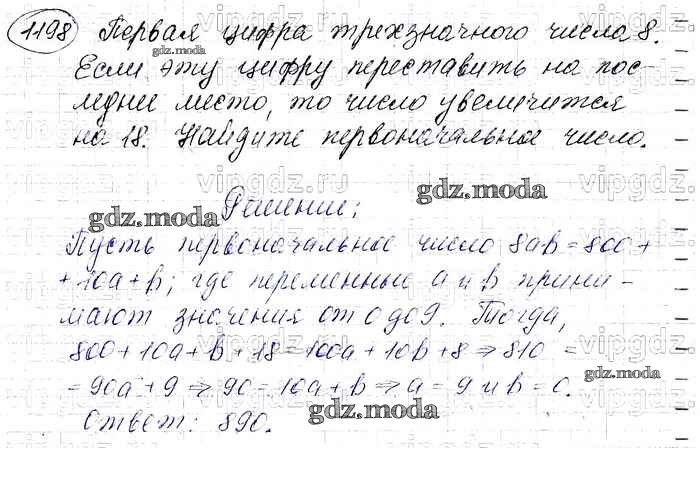 1198 Первая цифра трехзначного числа 8.
gdz.moda
Если эту цифру переставить на пос-
леднее место, то число увеличится
на 18. Найдите первоначальное число.
vipgdz.ru
gdz.moda
gdz.moda
Решение:
Пусть первоначальное число 8ab = 800 +
+ 10a + b; где переменные a и b прини-
мают значения от 0 до 9. Тогда,
800 + 10a + b + 18 = 100a + 10b + 8 ⇒ 810 =
= 90a + 9 ⇒ 90 = 10a + b ⇒ a = 9 и b = 0.
gdz.moda
Ответ: 890.
gdz.moda